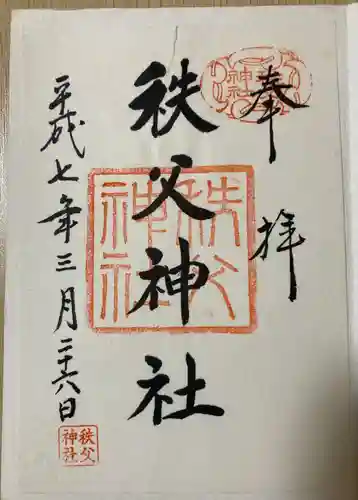 奉拝
秩父神社
秩父神社
平成七年三月二十六日
秩父
神社